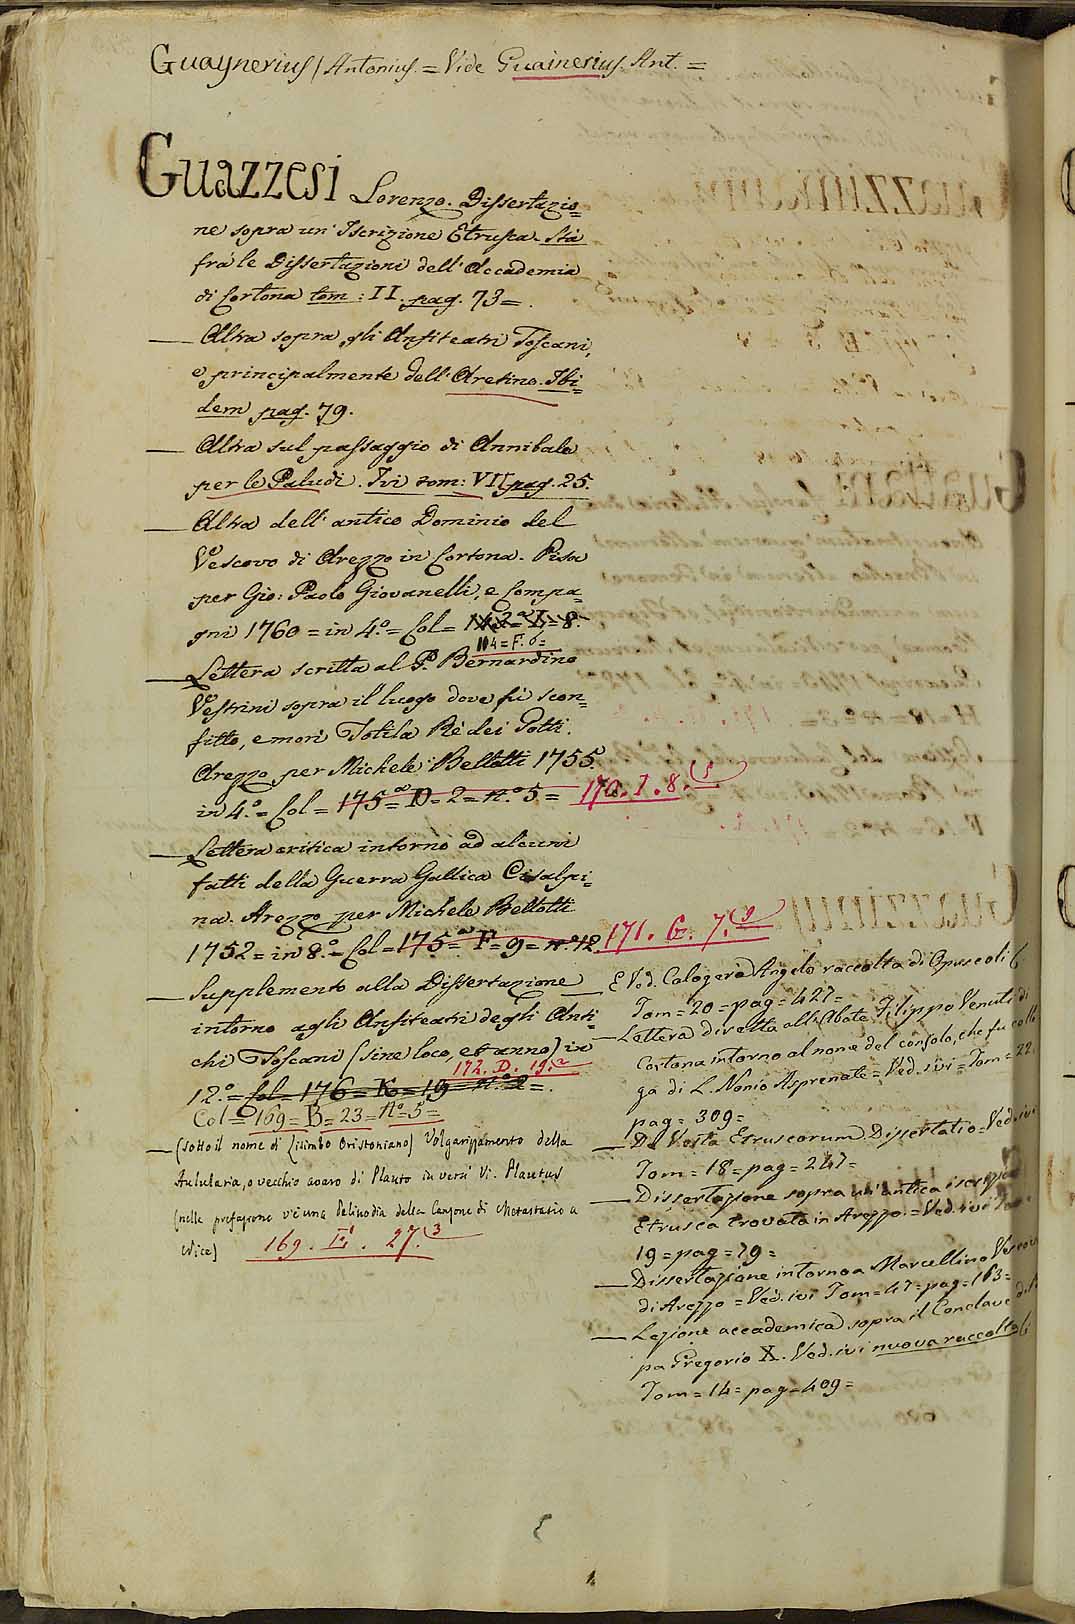 Guaynerius / Antonius. = Vide Guainerius. Ant. =
Guazzesi Lorenzo. Dissertazio=
ne sopra un' Iscrizione Etrusca. Stà
frà le Dissertazioni dell'Accademia
di Cortona tom: II. pag. 73=.
— Altra sopra gli Anfiteatri Toscani,
e principalmente dell'Aretino. Ibi=
dem pag. 79.
— Altra sul passaggio di Annibale
per le Paludi. Ivi tom: VI pag. 25
— Altra dell'antico Dominio del
Vescovo di Arezzo in Cortona. Pisa
per Gio: Paolo Giovanelli, e Compa=
gni 1760 = in 4.º = Col =
114 = F. 6 =
— Lettera scritta al P. Bernardino
Vestrini sopra il luogo dove fù scon=
fitto, e morì Totila Rè dei Gotti.
Arezzo per Michele Bellotti 1755.
in 4.º = Col = 175ª = D = 2 = nº 5 = 170. I. 8.(5
— Lettera critica intorno ad alcuni
fatti della Guerra Gallica Cisalpi=
na. Arezzo per Michele Bellotti
1752 = in 8.º = Col = 175=ª F = 9 = nº 12. 171. G. 7.(9
— Supplemento alla Dissertazione
intorno agli Anfiteatri degli Anti=
chi Toscani (sine loco, et anno) in
172. D. 19.
12.º = Col = 176 = K = 19 = nº 2 =.
Col = 169 = B = 23 = Nº 5 =
— (sotto il nome di Oristoniano) Volgarizzamento della
Aulularia, o vecchio avaro di Plauto in versi Vi. Plautus
(nella prefazione v'è una Palinodia della Canzone di Metastasio a
Nice) 169. E. 27.(3
— E Ved. Calogerà Angelo raccolta di Opuscoli
Tom = 20 = pag = 427 =
— Lettera diretta all'Abate Filippo Venuti di
Cortona intorno al nome del consolo, che fu
ga di L. Nonio Asprenate = Ved. ivi = Tom = 22.
pag = 309 =
— De Vesta Etruscorum Dissertatio = Ved. ivi
Tom = 18 = pag = 247 =
— Dissertazione sopra un'antica iscrizione
Etrusca trovata in Arezzo. = Ved. ivi Tom =
19 = pag = 79 =
— Dissertazione intorno a Marcellino Vescovo
di Arezzo = Ved. ivi Tom = 47 = pag = 163 =
— Lezione accademica sopra il Conclave del
pa Gregorio X. Ved. ivi nuova raccolta
Tom = 14 = pag = 409 =